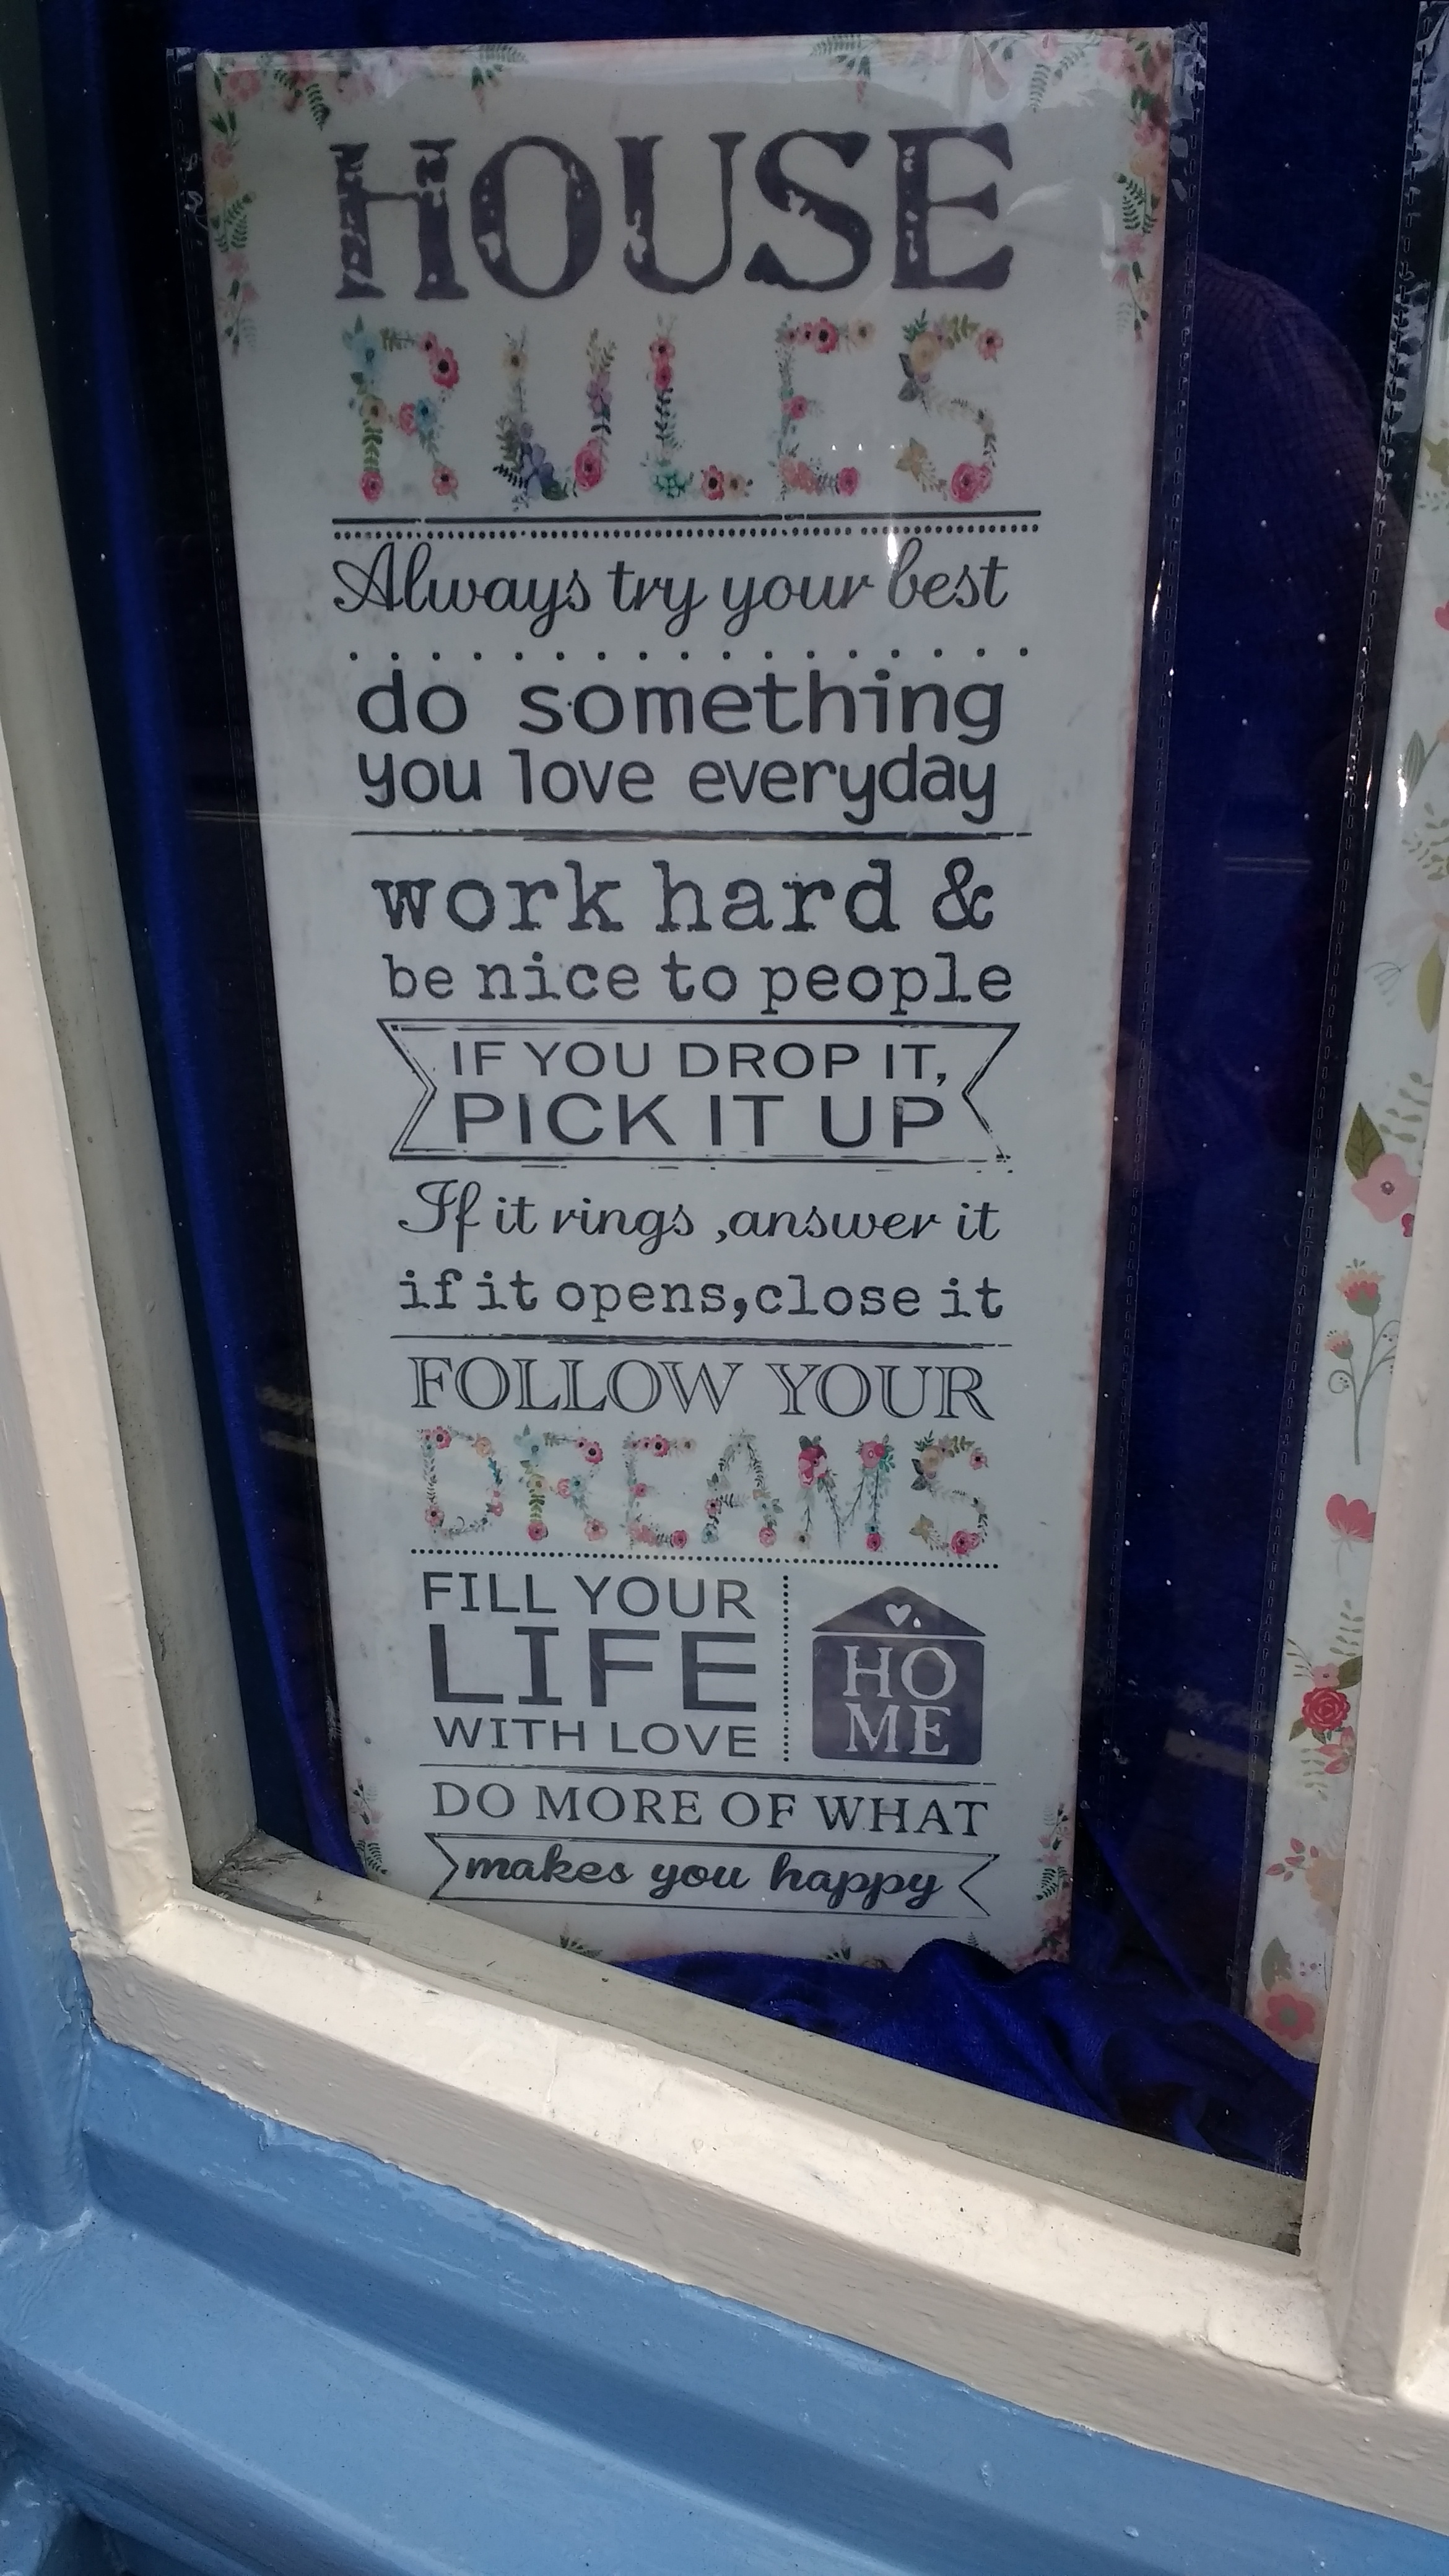 HOUSE
RULES
Always try your best
do something
you love everyday
work hard &
be nice to people
IF YOU DROP IT,
PICK IT UP
If it rings ,answer it
if it opens,close it
FOLLOW YOUR
DREAMS
FILL YOUR
LIFE
WITH LOVE
HO
ME
DO MORE OF WHAT
makes you happy